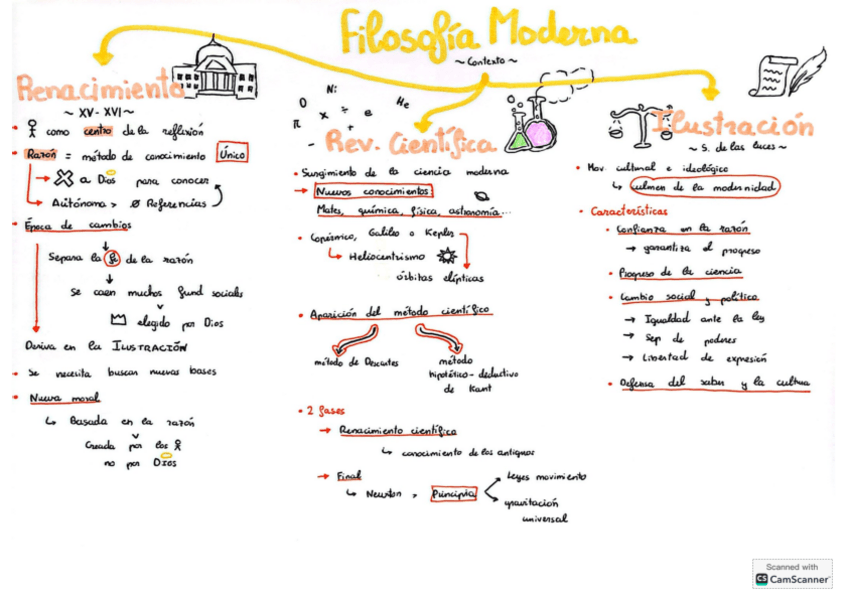 Filosofía Moderna
~ Contexto ~
Renacimiento
~ XV - XVI ~
como centro de la reflexión
Razón = método de conocimiento Único
a Dios para conocer
Autónoma > Ø Referencias
Época de cambios
Separa la fe de la razón
Se caen muchos fund sociales
elegido por Dios
Deriva en la ILUSTRACIÓN
Se necesita buscar nuevas bases
Nueva moral
Basada en la razón
Creada por los
no por DIOS
N:
O
He
π
x
÷
e
-
Rev. Científica
Surgimiento de la ciencia moderna
Nuevos conocimientos:
Mates, química, física, astronomía...
Copérnico, Galileo o Kepler
Heliocentrismo
órbitas elípticas
Aparición del método científico
método de Descartes
método
hipotético-deductivo
de Kant
2 fases
Renacimiento científico
conocimiento de los antiguos
Final
Newton > Principia
Leyes movimiento
gravitación
universal
Ilustración
~ S. de las luces ~
Mov. cultural e ideológico
culmen de la modernidad
Características
Confianza en la razón
garantiza el progreso
Progreso de la ciencia
Cambio social y político
Igualdad ante la ley
Sep de poderes
Libertad de expresión
Defensa del saber y la cultura
Scanned with
CS CamScanner